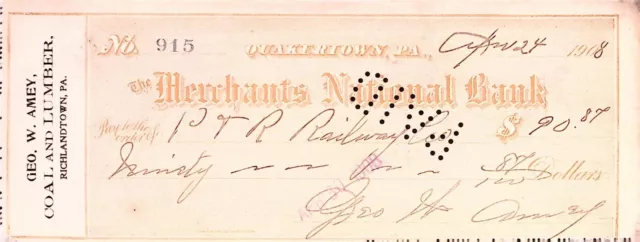 GEO. W. AMEY,
COAL AND LUMBER,
RICHLANDTOWN, PA.
No. 915 QUAKERTOWN, PA., 24 1908
The Merchants National Bank
Pay to the order of P & R Railway Co $ 90.87
Ninety 87/100 Dollars
Geo W Amey